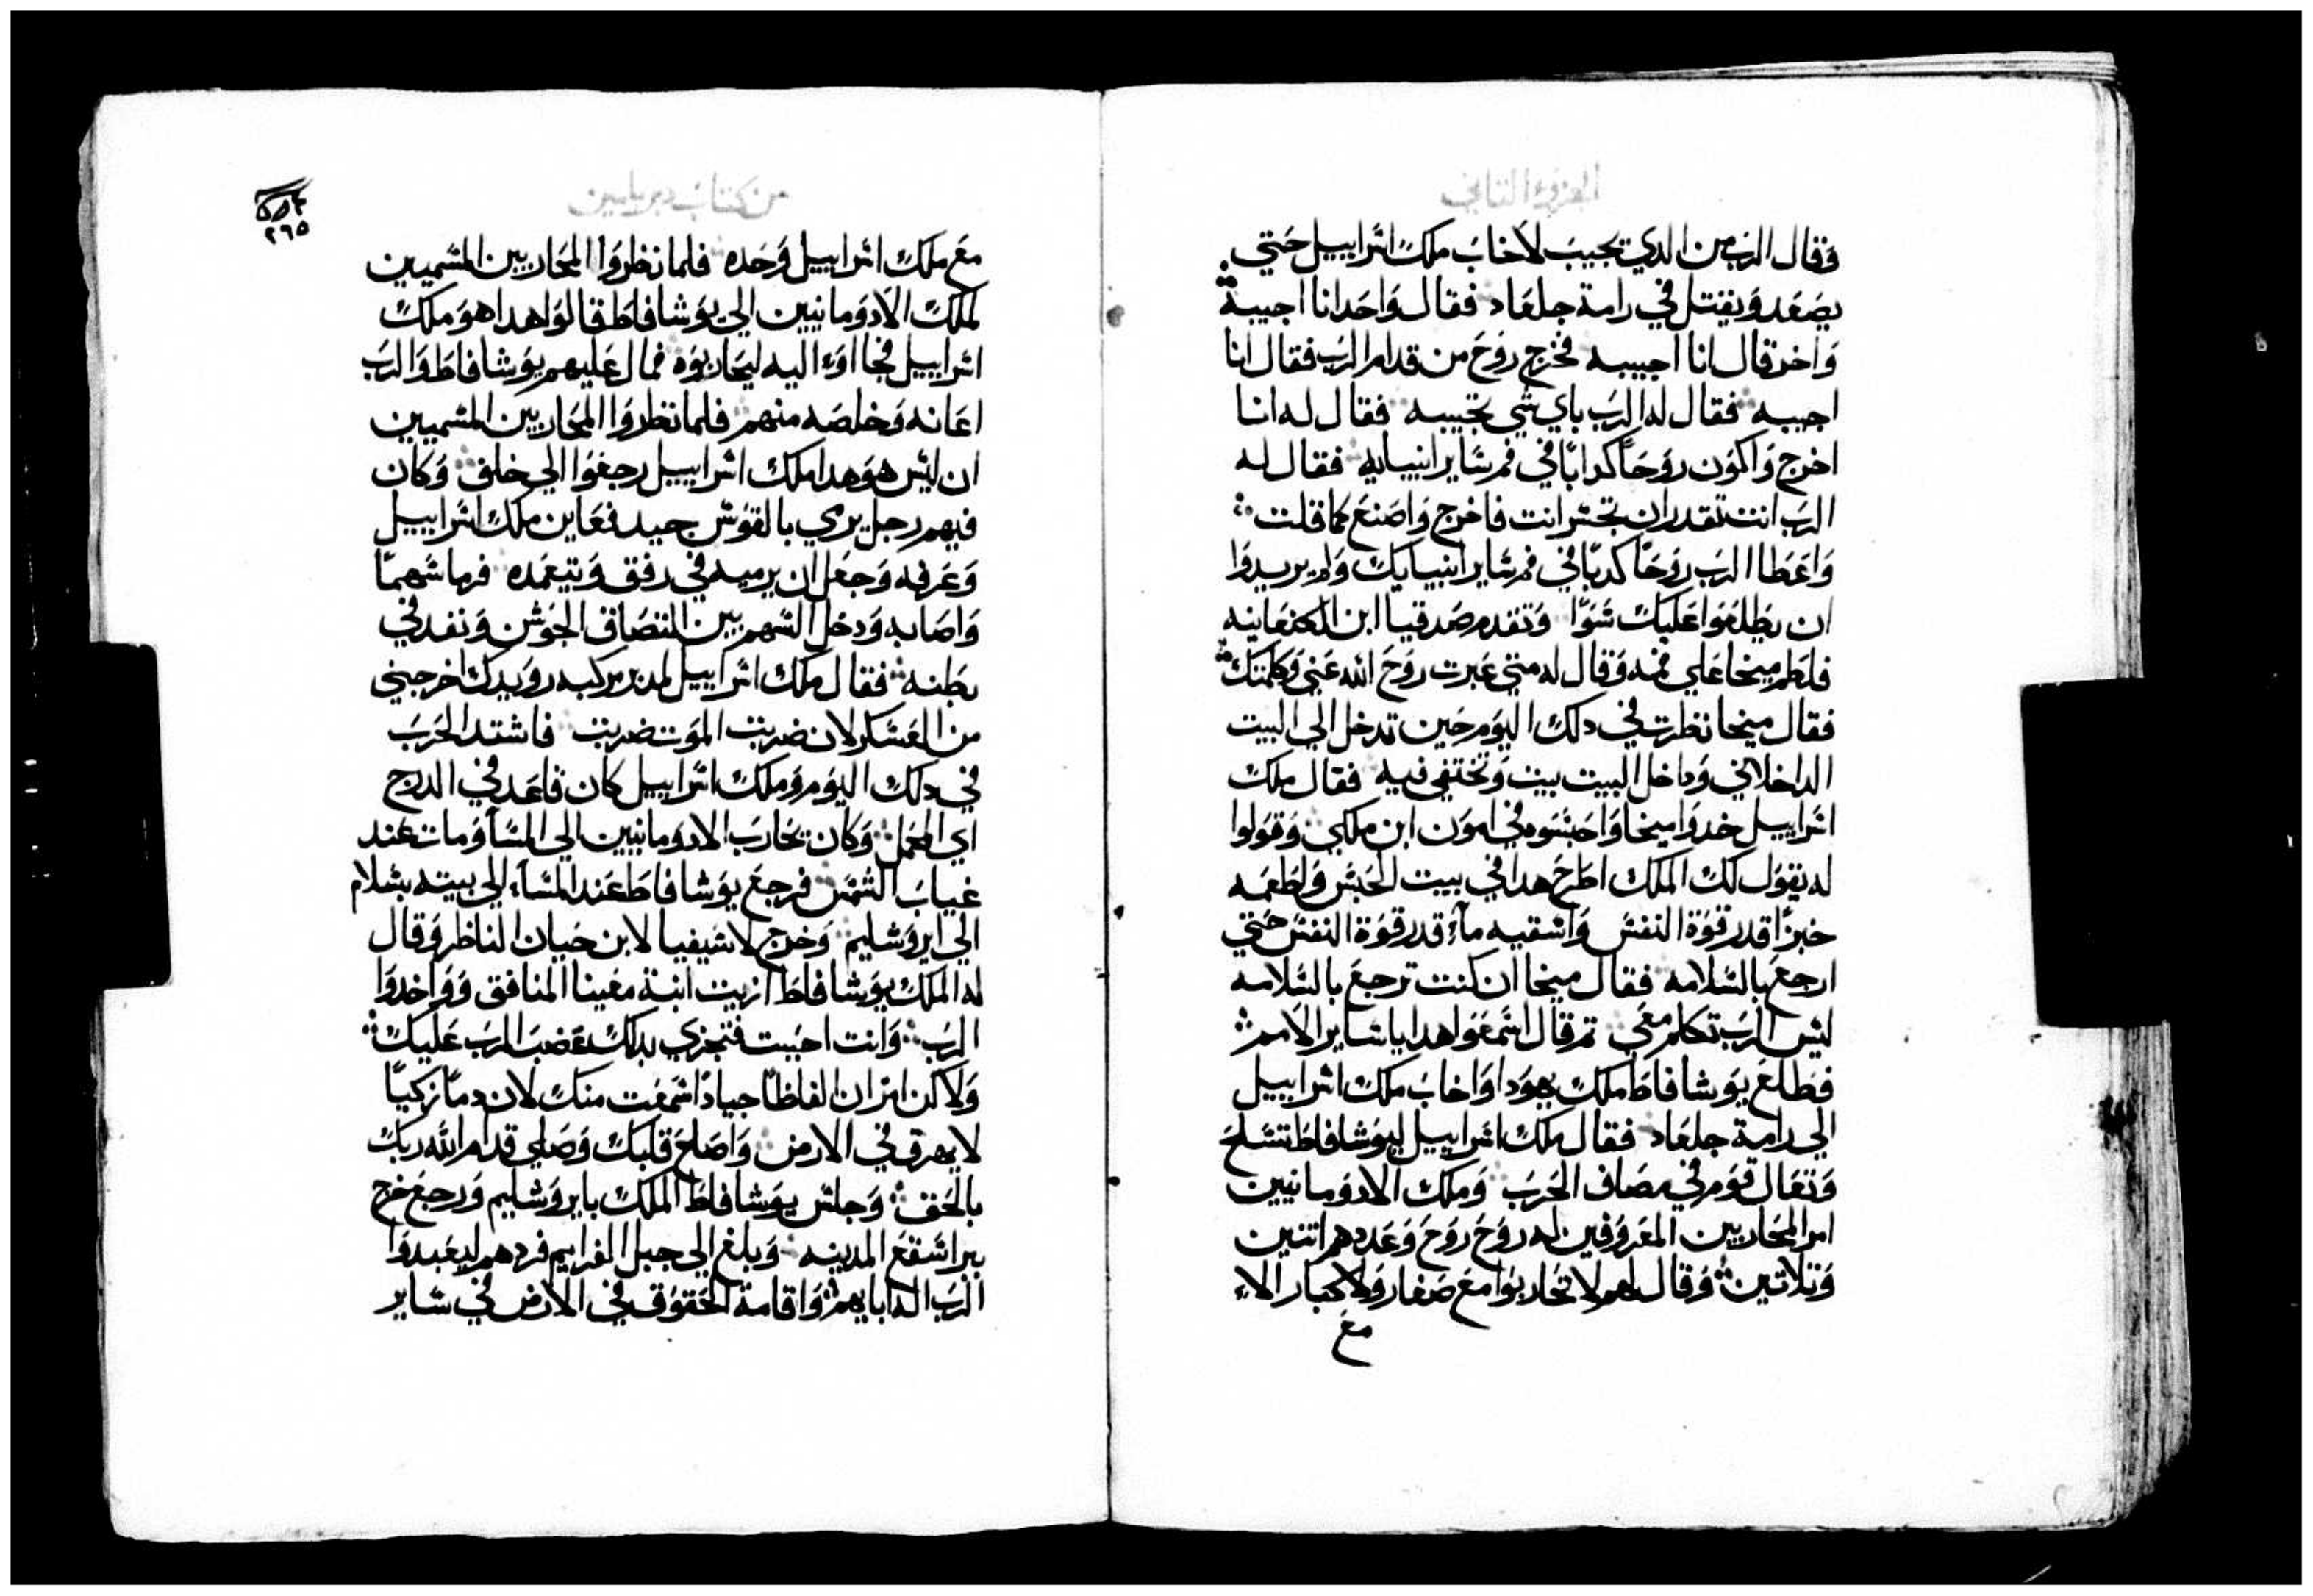 الجزو الثاني
فقال الرب من الدي يجيب لاخاب ملك اسراييل حتي
يصعد ويقتل في رامة جلعاد فقال واحد انا اجيبه
واخر قال انا اجيبه فخرج روح من قدام الرب فقال انا
اجيبه فقال له الرب باي شي تجيبه فقال له انا
اخرج واكون روحا كدابا في فم ساير انبيايه فقال له
الرب انت تقدر ان تجسر انت فاخرج واصنع كما قلت
واعطا الرب روحا كدبا في فم ساير انبيايك ولم يريدوا
ان يطلعوا عليك سوا وتقدم صدقيا ابن الكنعانيه
فلطم ميخا علي فمه وقال له متي عبرت روح الله عني وكلمتك
فقال ميخا نظرت في دلك اليوم حين تدخل الي البيت
الداخلاني وداخل البيت بيت وتختفي فيه فقال ملك
اسراييل خدوا ميخا واحبسوه في امون ابن ملكي وقولوا
له يقول لك الملك اطرح هدا في بيت الحبس ولطعمه
خبزا قدر قوة النفس واسقيه مآء قدر قوة النفس حتي
ارجع بالسلامه فقال ميخا ان كنت ترجع بالسلامه
ليس الرب تكلم معي تم قال اسمعوا هدا يا ساير الامم
فطلع يوشافاط ملك يهودا واخاب ملك اسراييل
الي رامة جلعاد فقال ملك اسراييل ليوشافاط تسلح
وتعال قوم في مصاف الحرب وملك الادومانيين
امر المحاربين المعروفين له روح روح وعددهم اتنين
وتلاتين وقال لهم لا تحاربوا مع صغار ولا كبار الا
مع
من كتاب دبريامين
٢٦٥
مع ملك اسراييل وحده فلما نظروا المحاربين المسميين
لملك الادومانيين الي يوشافاط قالوا هدا هو ملك
اسراييل فجااوا اليه ليحاربوه فمال عليهم يوشافاط والرب
اعانه وخلصه منهم فلما نظروا المحاربين المسميين
ان ليس هو هدا ملك اسراييل رجعوا الي خلف وكان
فيهم رجل يرمي بالقوس جيد فعاين ملك اسراييل
وعرفه وجعل ان يرميه في رفق ويتعمده فرما سهما
واصابه ودخل السهم بين التصاق الجوشن ونفد في
بطنه فقال ملك اسراييل لمدبر مركبه رويدك اخرجني
من العسكر لان ضربت الموت ضربت فاشتد الحرب
في دلك اليوم وملك اسراييل كان قاعد في الدرج
اي المحمل وكان يحارب الادومانيين الي المسآ ومات عند
غياب الشمس فرجع يوشافاط عند المسآء الي بيته بسلام
الي ايروشليم وخرج لاشيفيا لابن حيان الناظر وقال
له الملك يوشافاط ازيت ابنة معينا المنافق وواخدوا
الرب وانت احببت فتجزي بدلك غضب الرب عليك
ولاكن اتران الفاظا جيادا سمعت منك لان دما زكيا
لا يهرق في الارض واصلح قلبك وصلي قدام الله ربك
بالحق وجلس يوشافاط الملك بايروشليم ورجع خرج
براشقع المدينه وبلغ الي جبل افرايم فردهم ليعبدوا
الرب اله ابايهم واقامة الحقوق في الارض في ساير